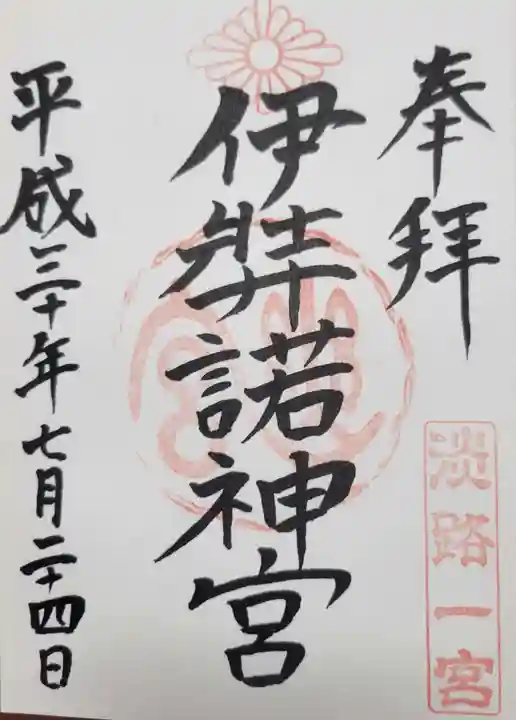 奉拝
淡路一宮
伊弉諾神宮
平成三十年七月二十四日